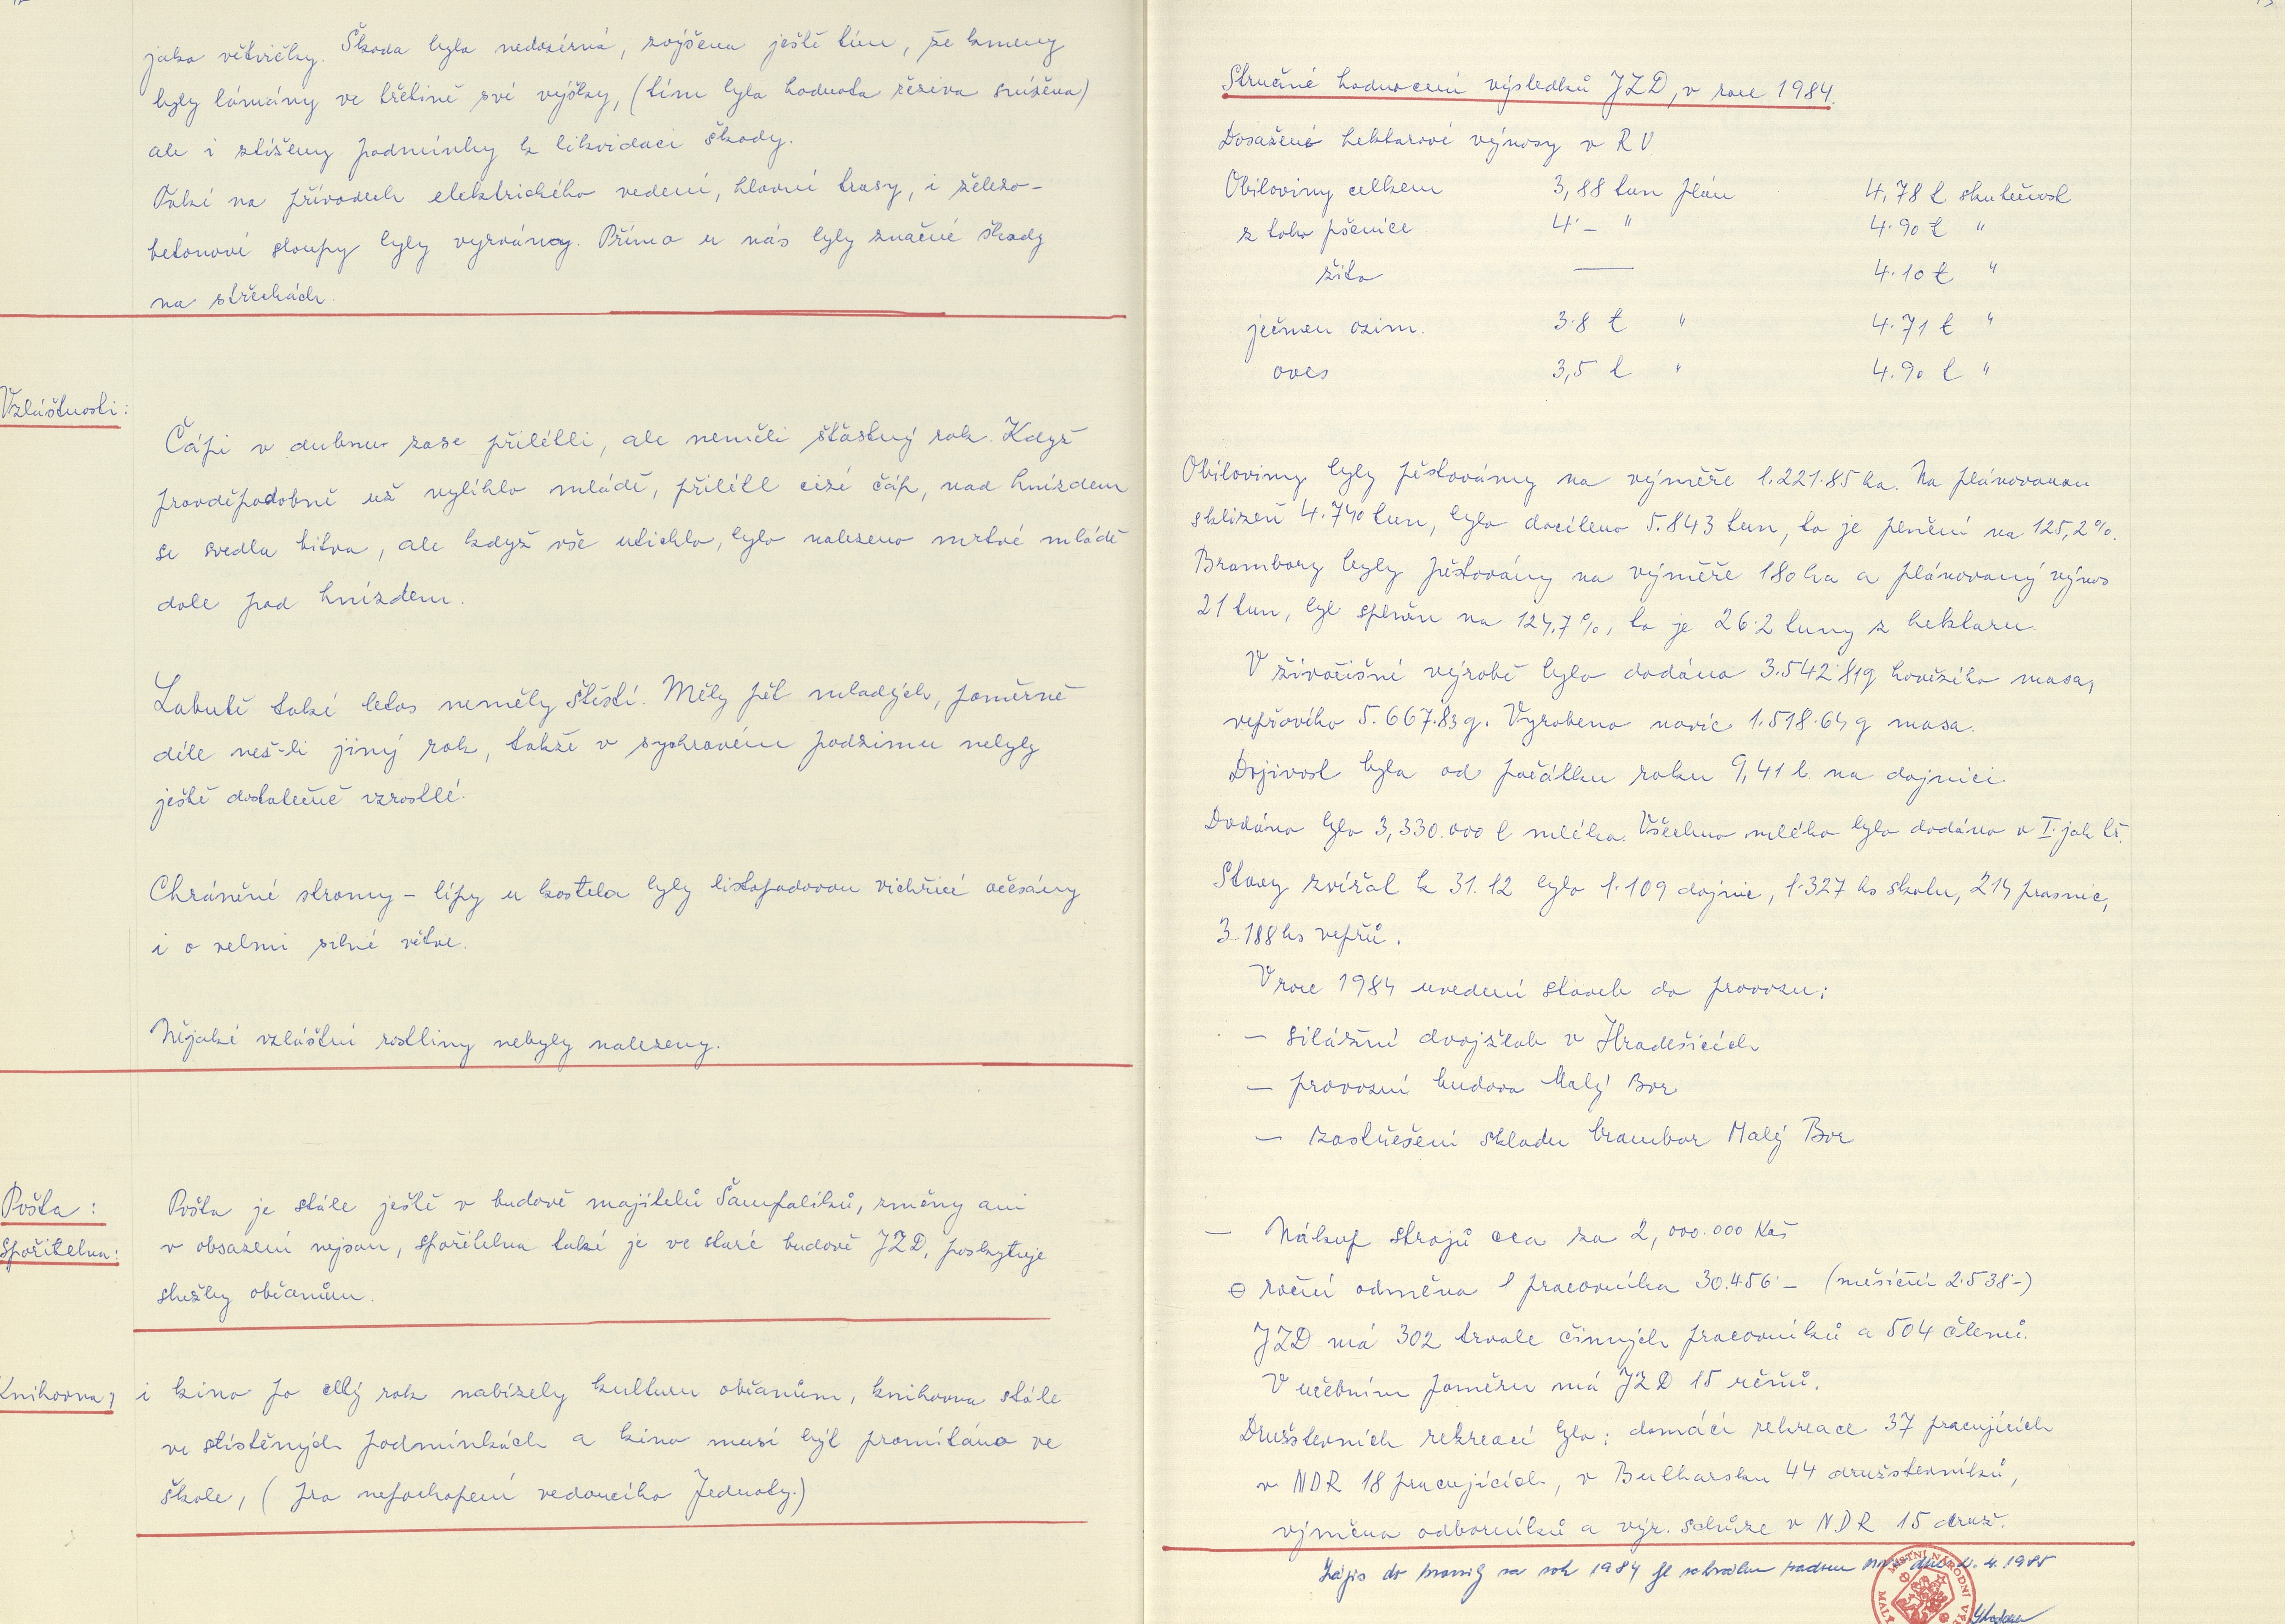 jako větvičky. Škoda byla nedozírná, zvýšena ještě tím, že kmeny
byly lámány ve třetině své výšky, (tím byla hodnota řeziva snížena)
ale i ztíženy podmínky k likvidaci škody.
Také na přívodech elektrického vedení, hlavní trasy, i železo-
betonové sloupy byly vyrvány. Přímo u nás byly značné škody
na střechách.
Vzláštnosti:
Čápi v dubnu zase přilétli, ale neměli šťastný rok. Když
pravděpodobně už vylíhlo mládě, přilétl cizí čáp, nad hnízdem
se svedla bitva, ale když vše utichlo, bylo nalezeno mrtvé mládě
dole pod hnízdem.
Labutě také letos neměly štěstí. Měly pět mladých, poměrně
déle než-li jiný rok, takže v sychravém podzimu nebyly
ještě dostatečně vzrostlé.
Chráněné stromy - lípy u kostela byly listopadovou vichřicí očesány
i o velmi silné větve.
Nějaké vzláštní rostliny nebyly nalezeny.
Pošta : Pošta je stále ještě v budově majitelů Šampalíků, změny ani
Spořitelna: v obsazení nejsou, spořitelna také je ve staré budově JZD, poskytuje
služby občanům.
Knihovna, i kino po celý rok nabízely kulturu občanům, knihovna stále
ve stístěných podmínkách a kino musí být promítáno ve
škole, (pro nepochopení vedoucího Jednoty.)
Stručné hodnocení výsledků JZD, v roce 1984.
Dosažené hektarové výnosy v RV
Obiloviny celkem 3,88 tun plán 4,78 t skutečnost
z toho pšenice 4·- " 4·90 t "
žito — 4·10 t "
ječmen ozim. 3·8 t " 4·71 t "
oves 3,5 t " 4·90 t "
Obiloviny byly pěstovány na výměře 1.221·85 ha. Na plánovanou
sklizeň 4.740 tun, bylo docíleno 5.843 tun, to je plnění na 125,2%.
Brambory byly pěstovány na výměře 180 ha a plánovaný výnos
21 tun, byl splněn na 124,7%, to je 26·2 tuny z hektaru.
V živočišné výrobě bylo dodáno 3.542·81q hovězího masa,
vepřového 5.667·83q. Vyrobeno navíc 1.518·64q masa.
Dojivost byla od počátku roku 9,41 l na dojnici.
Dodáno bylo 3,330.000 l mléka. Všechno mléko bylo dodáno v I. jak. tř.
Stavy zvířat k 31.12 bylo 1·109 dojnic, 1·327 ks skotu, 214 prasnic,
3.188 ks vepřů.
V roce 1984 uvedení staveb do provozu:
— silážní dvojžlab v Hradešicích
— provozní budova Malý Bor
— zastřešení skladu brambor Malý Bor
— Nákup strojů cca za 2,000.000 Kčs
⌀ roční odměna 1 pracovníka 30.456·— (měsíční 2·538·-)
JZD má 302 trvale činných pracovníků a 504 členů.
V učebním poměru má JZD 15 učňů.
Družstevních rekreací bylo: domácí rekreace 37 pracujících
v NDR 18 pracujících, v Bulharsku 44 družstevníků,
výměna odborníků a výr. schůze v NDR 15 druž.
Zápis do kroniky za rok 1984 je schválen radou MNV dne 4. 1985
MÍSTNÍ NÁRODNÍ VÝ
MALÝ